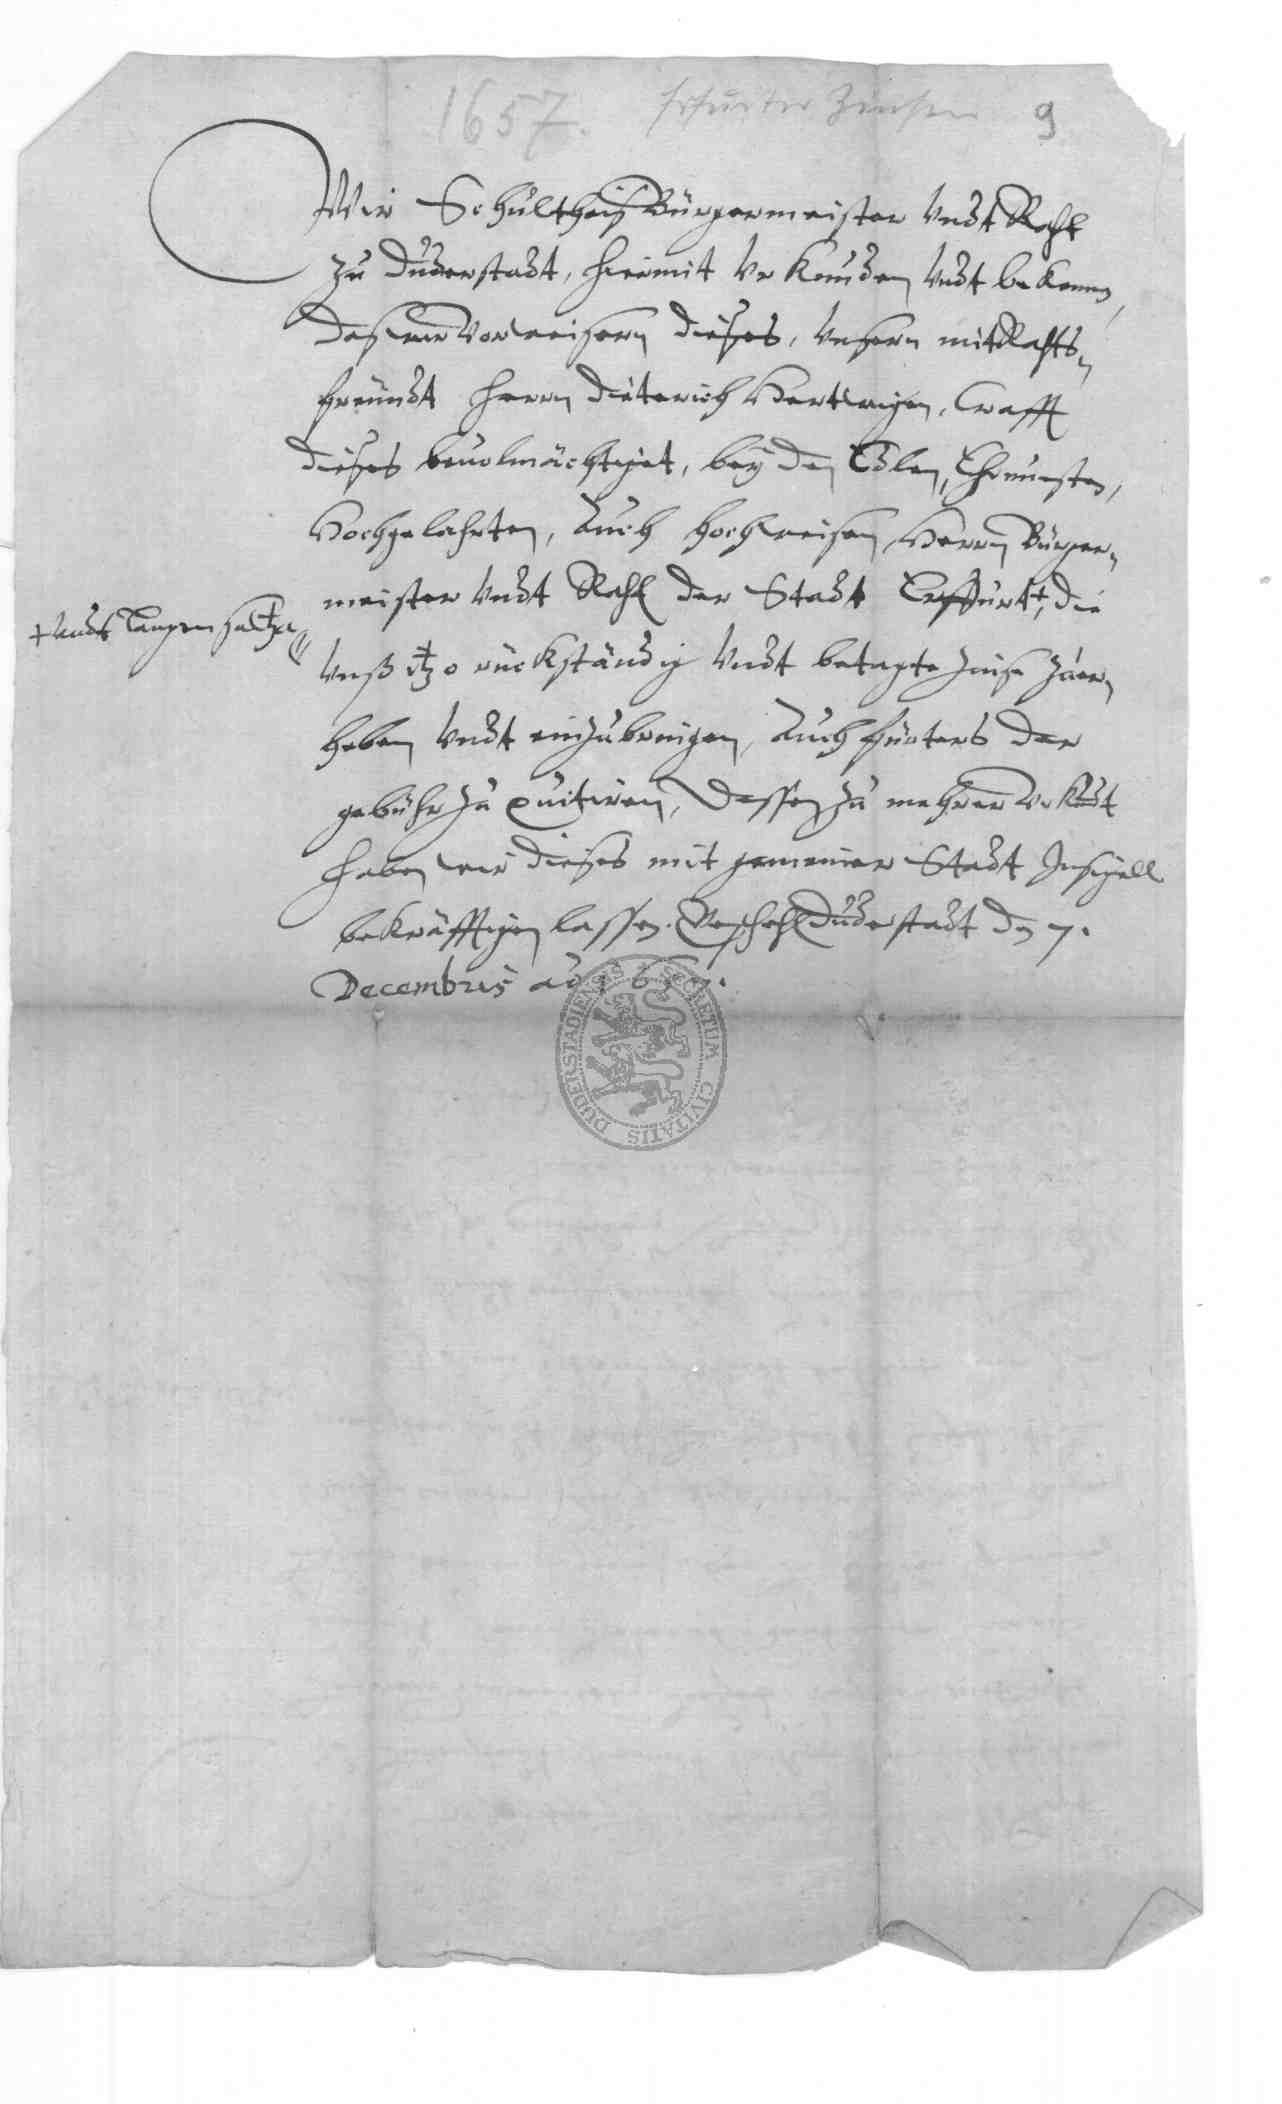 1657. Erfurter Zinsen 9
Wir Schultheiß Bürgermeister Undt Raht
zu Duderstadt, hiermit Vrkunden Undt bekennen,
daß wir Vorweisern dieses, Unsern mitRahts-
freundt Herrn Dieterich Hertwigen, Crafft
dieses beuolmächtiget, bey den Edlen, Ehrnuesten,
Hochgelahrten, Auch hochweisen Herrn Bürger-
meister Undt Raht der Stadt Erffurtt, die
+ Undt Langensaltza
Unß itzo rückständig Undt betagte Zinse zuer-
heben Undt einzubringen, Auch fürters der
gebühr zu quitiren, dessen zu mehrer Vrkundt
haben wir dieses mit gemeiner Stadt Insigell
bekräfftigen lassen. Geschehen Duderstadt den 7.
Decembris ao 1657.
SECRETUM CIVITATIS DUDERSTADIENSIS